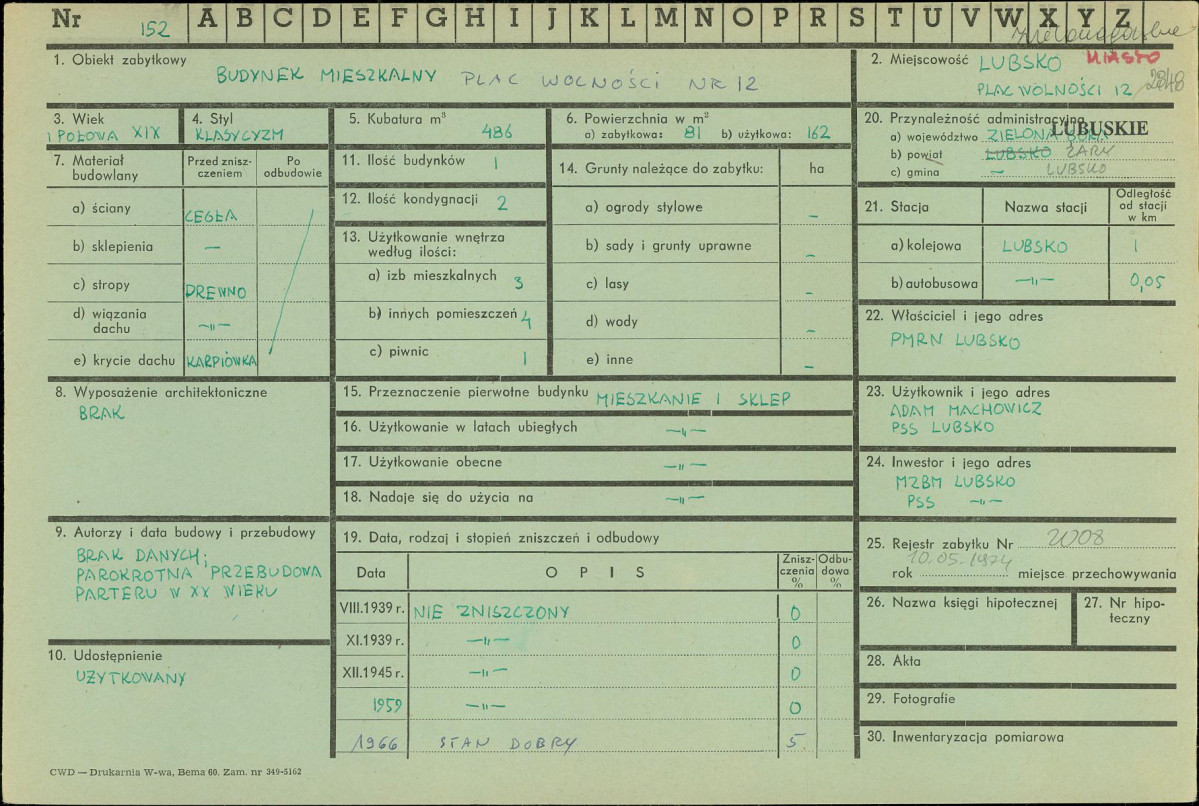 Nr 152 A B C D E F G H I J K L M N O P R S T U V W X Y Z
1. Obiekt zabytkowy
BUDYNEK MIESZKALNY PLAC WOLNOŚCI NR 12
2. Miejscowość LUBSKO MIASTO
PLAC WOLNOŚCI 12 2848
3. Wiek
I POŁOWA XIX
4. Styl
KLASYCYZM
5. Kubatura m³
486
6. Powierzchnia w m²
a) zabytkowa: 81 b) użytkowa: 162
7. Materiał budowlany
Przed zniszczeniem
Po odbudowie
a) ściany CEGŁA
b) sklepienia —
c) stropy DREWNO
d) wiązania dachu —„—
e) krycie dachu KARPIÓWKA
8. Wyposażenie architektoniczne
BRAK
9. Autorzy i data budowy i przebudowy
BRAK DANYCH;
PAROKROTNA PRZEBUDOWA
PARTERU W XX WIEKU
10. Udostępnienie
UŻYTKOWANY
11. Ilość budynków 1
12. Ilość kondygnacji 2
13. Użytkowanie wnętrza
według ilości:
a) izb mieszkalnych 3
b) innych pomieszczeń 4
c) piwnic 1
14. Grunty należące do zabytku: ha
a) ogrody stylowe –
b) sady i grunty uprawne –
c) lasy –
d) wody –
e) inne –
15. Przeznaczenie pierwotne budynku MIESZKANIE I SKLEP
16. Użytkowanie w latach ubiegłych —„—
17. Użytkowanie obecne —„—
18. Nadaje się do użycia na —„—
19. Data, rodzaj i stopień zniszczeń i odbudowy
Data OPIS Zniszczenia % Odbudowa %
VIII.1939 r. NIE ZNISZCZONY 0
XI.1939 r. —„— 0
XII.1945 r. —„— 0
1959 —„— 0
1966 STAN DOBRY 5
20. Przynależność administracyjna
LUBUSKIE
a) województwo ZIELONA GÓRA
b) powiat LUBSKO ŻARY
c) gmina – LUBSKO
21. Stacja Nazwa stacji Odległość od stacji w km
a) kolejowa LUBSKO 1
b) autobusowa —„— 0,05
22. Właściciel i jego adres
PMRN LUBSKO
23. Użytkownik i jego adres
ADAM MACHOWICZ
PSS LUBSKO
24. Inwestor i jego adres
MZBM LUBSKO
PSS —„—
25. Rejestr zabytku Nr 2008
10.05.1974
rok miejsce przechowywania
26. Nazwa księgi hipotecznej
27. Nr hipoteczny
28. Akta
29. Fotografie
30. Inwentaryzacja pomiarowa
CWD — Drukarnia W-wa, Bema 60. Zam. nr 349-5162